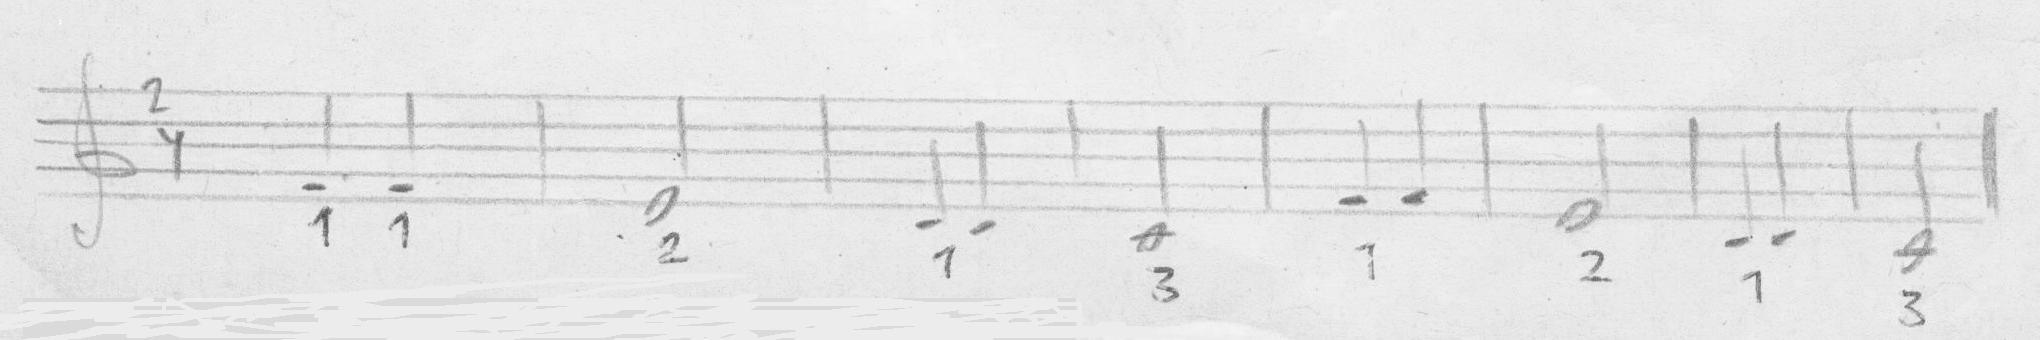 2
4
1 1 2 1 3 1 2 1 3